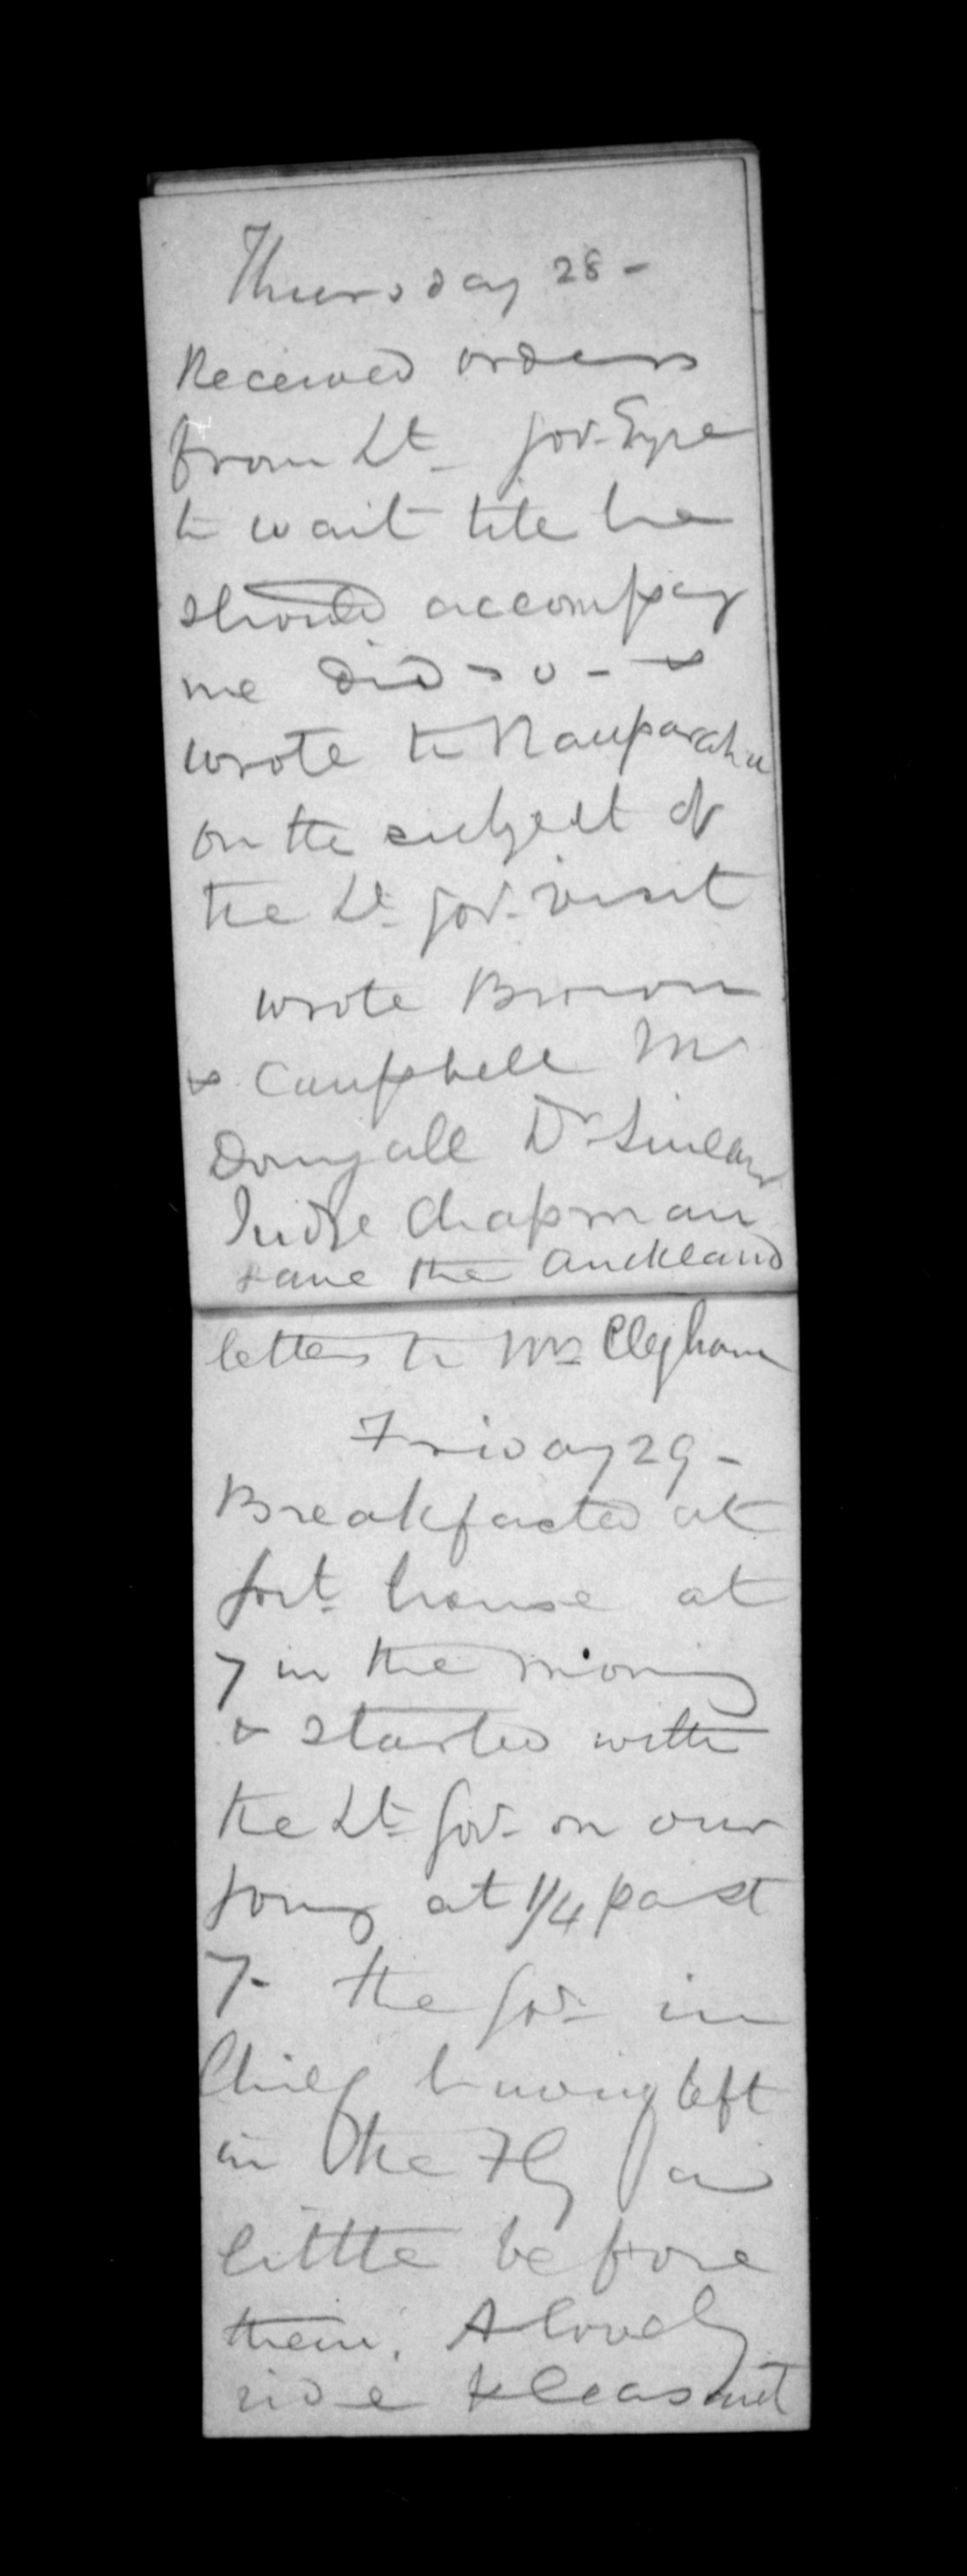 Thursday 28 -
Received orders
from Lt. Gov. Eyre
to wait till he
should accompay
me did so - &
wrote to Rauparaha
on the subject of
the Lt. Gov. visit
wrote Brown
& Campbell Mc
Dougall Dr Sinclair
Judge Chapman
Gave the Auckland
letters to Mrs Cleghorn
Friday 29 -
Breakfasted at
Govt. house at
7 in the morning
& started with
the Lt. Gov. on our
jouny at 1/4 past
7 - the Gov. in
Chief having left
in the Fly a
little before
them. A lovely
ride pleasant